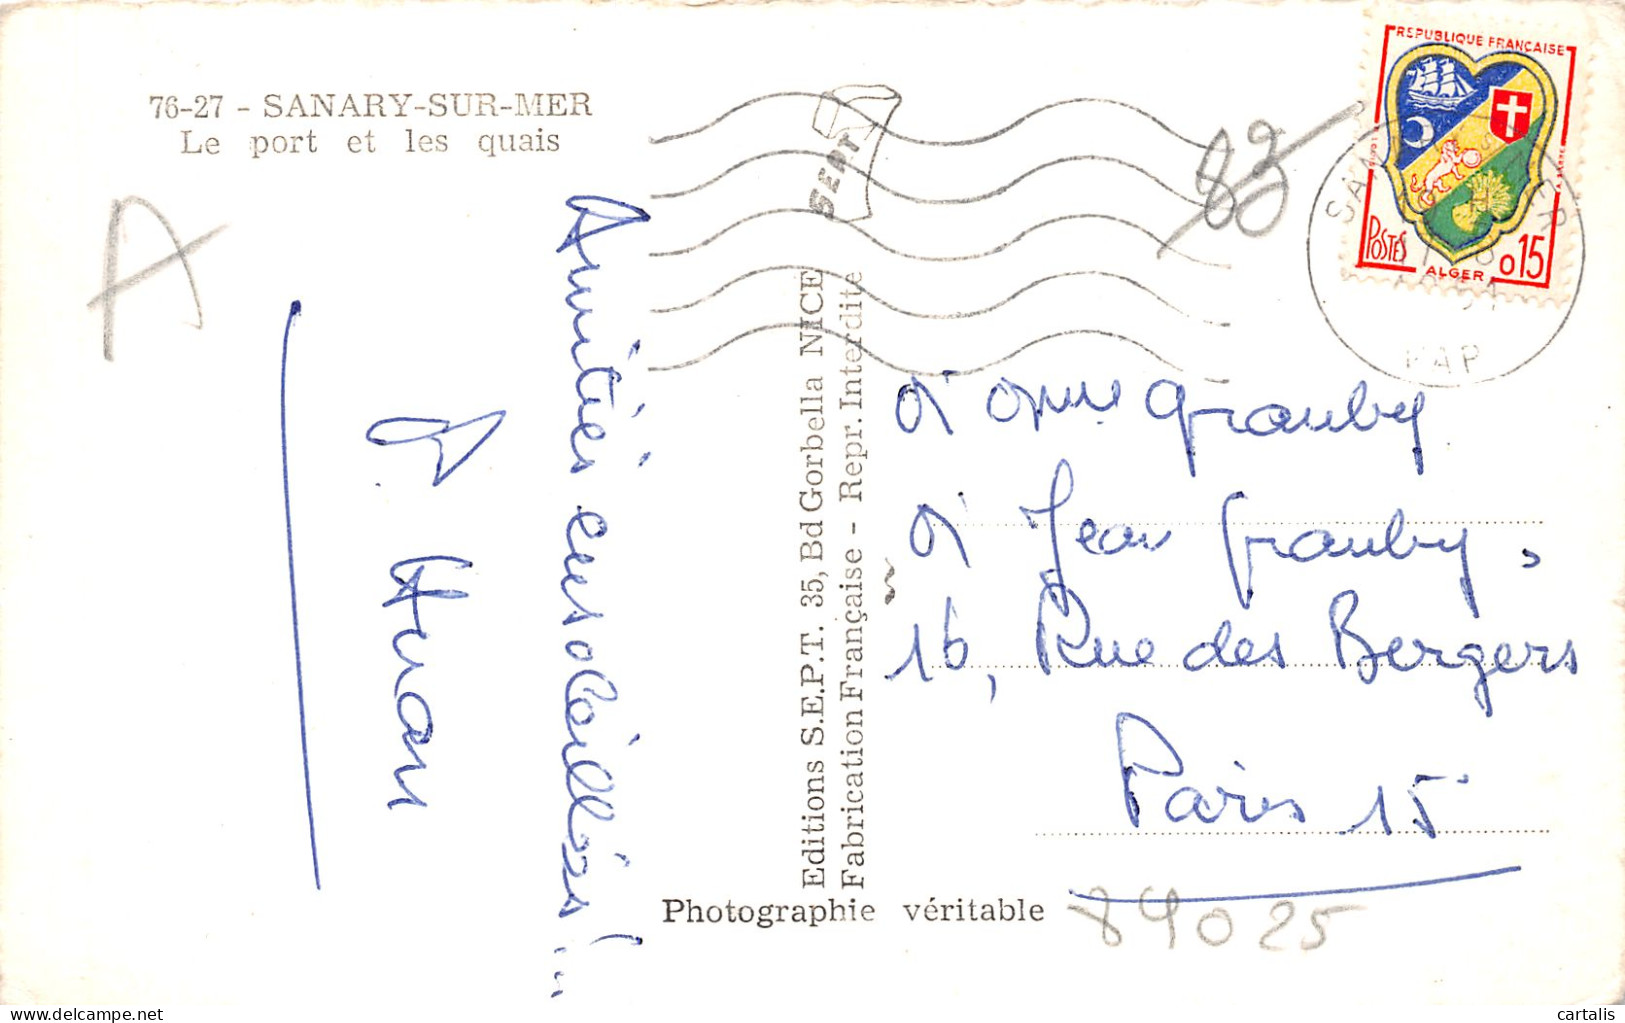 76-27 - SANARY-SUR-MER
Le port et les quais
A
Amitiés ensoleillées !...
Huon
SEPT
Editions S.E.P.T. 35, Bd Gorbella NICE
Fabrication Française - Repr. Interdite
Photographie véritable
83
REPUBLIQUE FRANÇAISE
POSTES
ALGER
0,15
Mme Grauby
Jean Grauby,
16, Rue des Bergers
Paris 15
89025
delcampe.net
cartalis